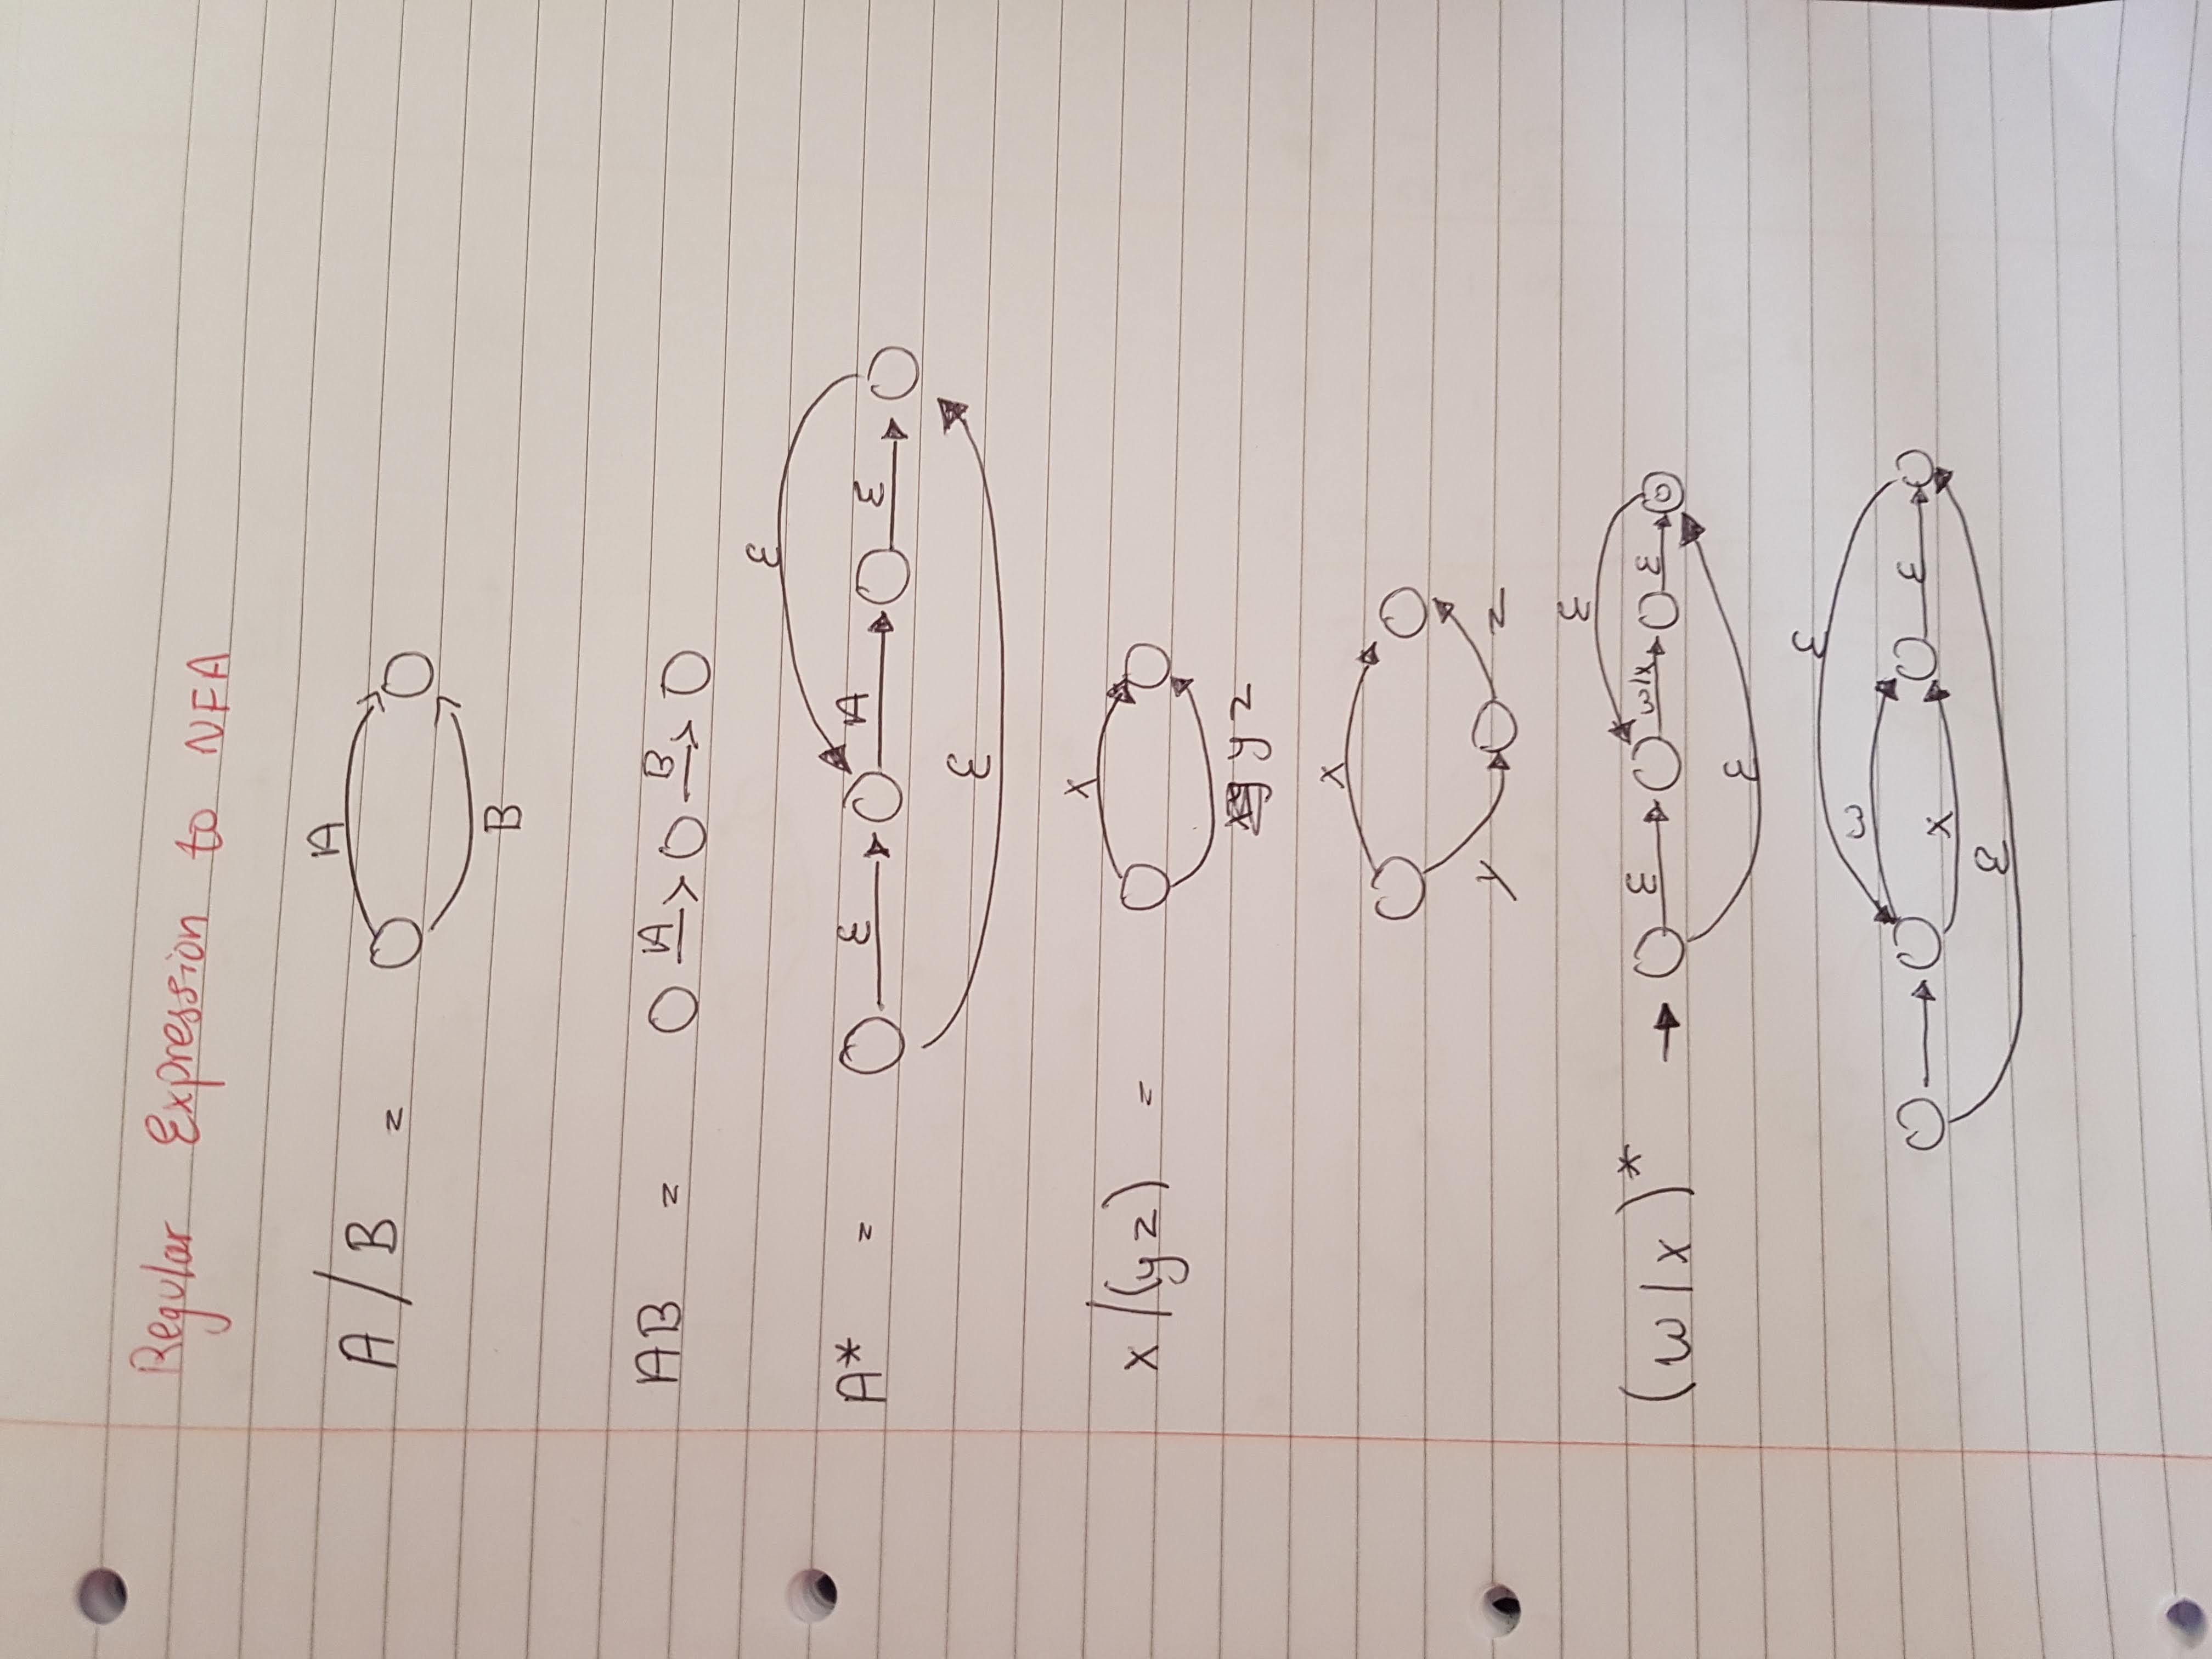 Regular Expression to NFA
A
A / B =
B
AB = A B
ε
A* = ε A ε
ε
x
x /(yz) =
yz
x
y z
ε
(w|x)* → ε w/x ε
ε
ε
w
ε
x
ε